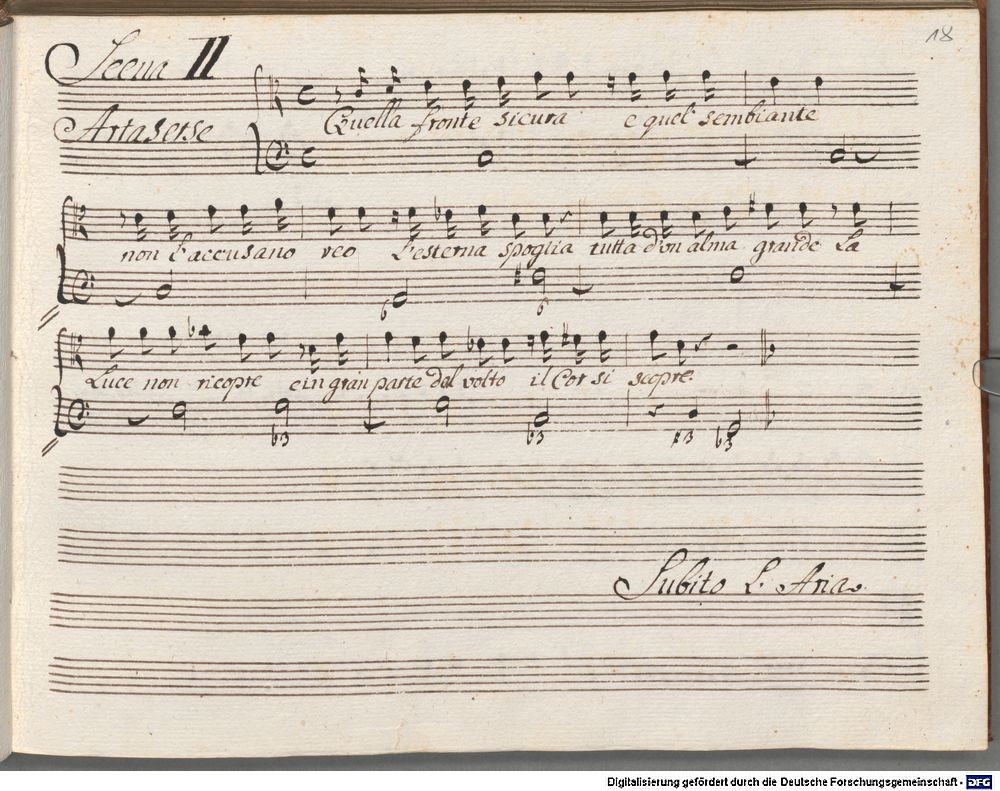 18
Scena II
Artaserse
Quella fronte sicura e quel sembiante
non l'accusano reo l'esterna spoglia tutta d'un alma grande la
6 6
Luce non ricopre e in gran parte dal volto il Cor si scopre.
♭3 ♭3 ♯3 ♭3
Subito L'Aria
Digitalisierung gefördert durch die Deutsche Forschungsgemeinschaft - DFG